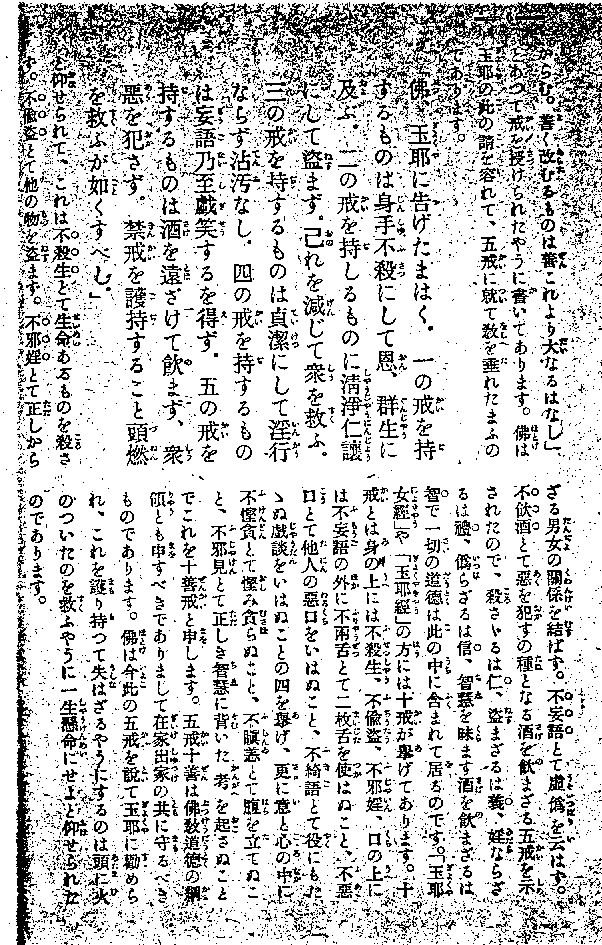 ならむ。善く改むるものは善これより大なるはなし」
とあつて戒を授けられたやうに書いてあります。佛は
玉耶の此の請を容れて、五戒に就て敎を垂れたまふの
であります。
「佛、玉耶に告げたまはく。一の戒を持
するものは身手不殺にして恩、群生に
及ぶ。二の戒を持しるものに淸淨仁讓
にして盜まず。己れを減じて衆を救ふ。
三の戒を持するものは貞潔にして淫行
ならず沾汚なし。四の戒を持するもの
は妄語乃至戯笑するを得ず。五の戒を
持するものは酒を遠ざけて飮まず、衆
惡を犯さず。禁戒を護持すること頭燃
を救ふが如くすべし。」
と仰せられて、これは不殺生とて生命あるものを殺さ
す。不偸盜とて他の物を盜ます。不邪婬とて正しから
ざる男女の關係を結ばす。不妄語とて虛僞を云はす。
不飮酒とて惡を犯すの種となる酒を飮まざる五戒を示
されたので、殺さゝるは仁、盜まざるは義、婬ならざ
るは禮、僞らざるは信、智慧を昧ます酒を飮まざるは
智で一切の道德は此の中に含まれて居るのです。「玉耶
女經」や「玉耶經」の方には十戒が擧げてあります。十
戒とは身の上には不殺生、不偸盜、不邪婬、口の上に
は不妄語の外に不兩舌とて二枚舌を使はぬこと、不惡
口とて他人の惡口をいはぬこと、不綺語とて役にもた
ゝぬ戯談をいはぬことの四を擧げ、更に意と心の中に
不慳貪とて慳み貪らぬこと、不瞋恚とて腹を立てぬこ
と、不邪見とて正しき智慧に背いた考を起さぬこと
でこれを十善戒と申します。五戒十善は佛敎道德の綱
領とも申すべきでありまして在家出家の共に守るべき
ものであります。佛は今此の五戒を說て玉耶に勸めら
れ、これを護り持つて失はざるやうにするのは頭に火
のついたのを救ふやうに一生懸命にせよと仰せられた
のであります。